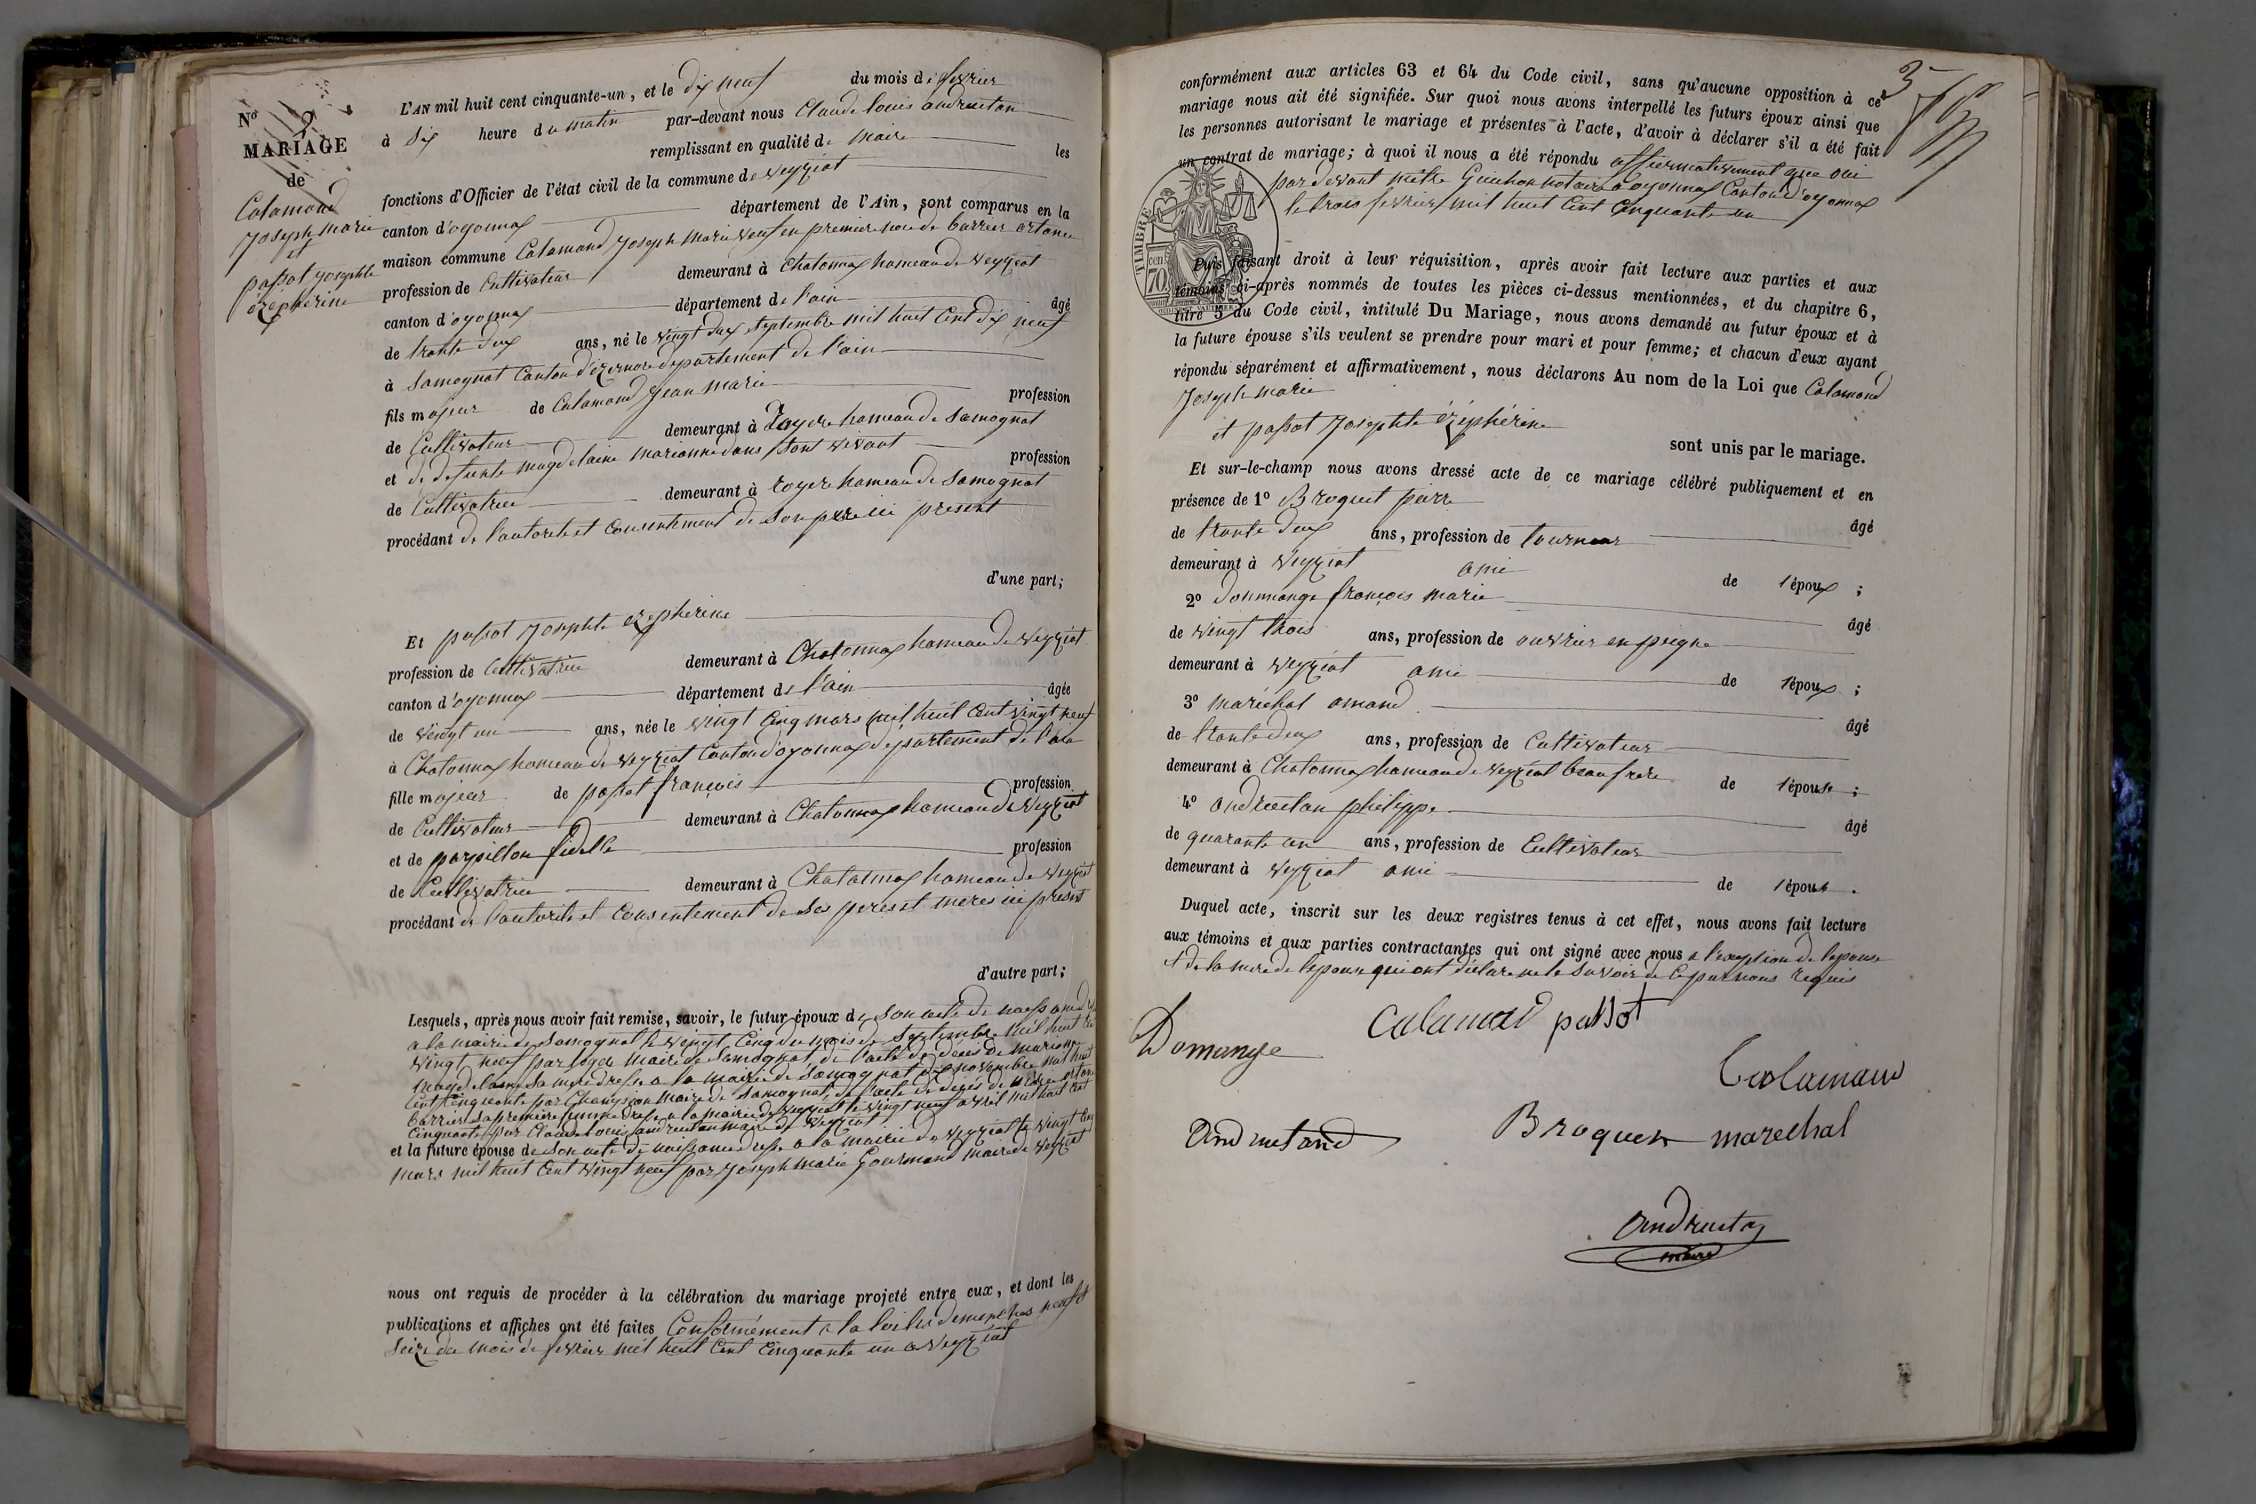 No 2
MARIAGE
de
Calamand
Joseph marie
et
passot josephte
ézépherine
L'AN mil huit cent cinquante-un, et le dix neuf du mois de fevrier
à dix heure du matin par-devant nous Claude louis andruetan
remplissant en qualité de maire les
fonctions d'Officier de l'état civil de la commune de veyziat
canton d'oyonnax département de l'Ain, sont comparus en la
maison commune Calamand Joseph Marie veuf en premiere noce de barrier
profession de Cultivateur demeurant à Chatonnax hameau de veyziat
canton d'oyonnax département de l'ain âgé
de trante deux ans, né le vingt deux septembre mil huit Cent dix neuf
à Samognat Canton d'izernore departement de l'ain
fils majeur de Calamand Jean marie profession
de Cultivateur demeurant à Royere hameau de Samognat
et de defunte magdelaine marianne dans sont vivant profession
de Cultivatrice demeurant à royere hameau de Samognat
procédant de l'autorité et Consentement de Son pere ici present
d'une part;
Et passot Josephte ézépherine
profession de Cultivatrice demeurant à Chatonnax hameau de veyziat
canton d'oyonnax département de l'ain âgée
de vingt un ans, née le vingt Cinq mars mil huit Cent vingt neuf
à Chatonnax hameau de veyziat Canton d'oyonnax departement de l'ain
fille majeur de passot françois profession
de Cultivateur demeurant à Chatonnax hameau de veyziat
et de papillon fidelle profession
de Cultivatrice demeurant à Chatonnax hameau de veyziat
procédant de l'autorité et Consentement de Ses peres et meres ici present
d'autre part;
Lesquels, après nous avoir fait remise, savoir, le futur époux de Son acte de naissance
a la mairie de Samognat le vingt Cinq du mois de Septembre mil huit
vingt neuf par maire de Samognat, de l'acte de déces de marianne
magdelaine Sa mere dressé a la mairie de Samognat novembre mil huit
Cent Cinquante par maire de Samognat, de l'acte de déces de
barrier Sa premiere femme dressé a la mairie de veyziat le vingt neuf avril mil huit Cent
Cinquante par Claude louis andruetan maire de veyziat
et la future épouse de Son acte de naissance dressé a la mairie de veyziat le vingt Cinq
mars mil huit Cent vingt neuf par Joseph Marie Gourmand maire de veyziat
nous ont requis de procéder à la célébration du mariage projeté entre eux, et dont les
publications et affiches ont été faites Conformément a la loi les dimanches neuf et
Seize du mois de fevrier mil huit Cent Cinquante un a veyziat
3
conformément aux articles 63 et 64 du Code civil, sans qu'aucune opposition à ce
mariage nous ait été signifiée. Sur quoi nous avons interpellé les futurs époux ainsi que
les personnes autorisant le mariage et présentes à l'acte, d'avoir à déclarer s'il a été fait
un contrat de mariage; à quoi il nous a été répondu affirmativement que oui
par devant notaire a oyonnax Canton d'oyonnax
le trois fevrier mil huit Cent Cinquante un
TIMBRE
70 cent
Puis faisant droit à leur réquisition, après avoir fait lecture aux parties et aux
témoins ci-après nommés de toutes les pièces ci-dessus mentionnées, et du chapitre 6,
titre 5 du Code civil, intitulé Du Mariage, nous avons demandé au futur époux et à
la future épouse s'ils veulent se prendre pour mari et pour femme; et chacun d'eux ayant
répondu séparément et affirmativement, nous déclarons Au nom de la Loi que Calamand
Joseph marie
et passot Josephte ézéphérine
sont unis par le mariage.
Et sur-le-champ nous avons dressé acte de ce mariage célébré publiquement et en
présence de 1o Broquet pierre
âgé
de trante deux ans, profession de tourneur
demeurant à veyziat ami de l'époux ;
2o dommange françois marie
âgé
de vingt trois ans, profession de ouvrier en peigne
demeurant à veyziat ami de l'époux ;
3o maréchal amand
âgé
de trante deux ans, profession de Cultivateur
demeurant à Chatonnax hameau de veyziat beaufrere de l'épouse ;
4o andruetan philippe
âgé
de quarante un ans, profession de Cultivateur
demeurant à veyziat ami de l'épouse .
Duquel acte, inscrit sur les deux registres tenus à cet effet, nous avons fait lecture
aux témoins et aux parties contractantes qui ont signé avec nous a l'exception de l'epouse
et de la mere de l'epouse qui ont déclaré ne le Savoir de Ce par nous requis
Calamad passot
Domange
Andruetand
Broquet marechal
Andruetan
maire